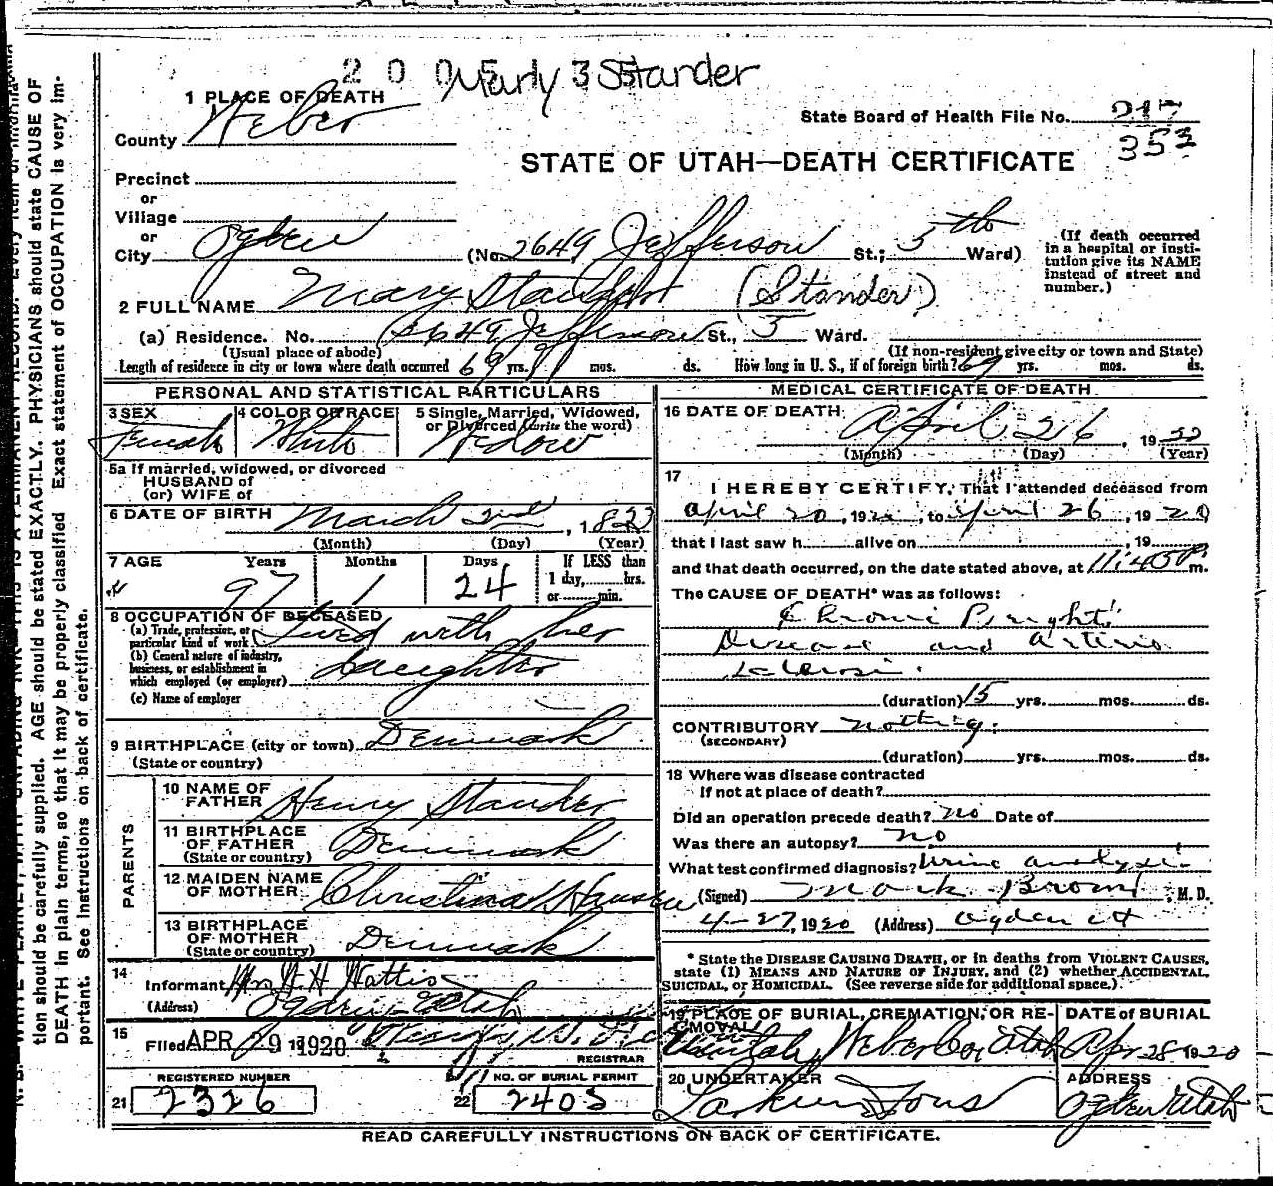 2 0 0 5 3 5
Marly Stander
1 PLACE OF DEATH
County Weber
State Board of Health File No. 217
353
STATE OF UTAH—DEATH CERTIFICATE
Precinct
or
Village
or
City Ogden (No. 2649 Jefferson St.; 5th Ward)
(If death occurred in a hospital or institution give its NAME instead of street and number.)
2 FULL NAME Mary (Stander)
(a) Residence. No. 2649 Jefferson St., 5 Ward.
(Usual place of abode) (If non-resident give city or town and State)
Length of residence in city or town where death occurred 69 yrs. mos. ds. How long in U. S., if of foreign birth? 69 yrs. mos. ds.
PERSONAL AND STATISTICAL PARTICULARS
3 SEX Female
4 COLOR OR RACE White
5 Single, Married, Widowed, or Divorced (write the word) Widow
5a If married, widowed, or divorced
HUSBAND of
(or) WIFE of
6 DATE OF BIRTH March 2nd, 1823
(Month) (Day) (Year)
7 AGE Years 97 Months 1 Days 24 If LESS than 1 day, hrs. or min.
8 OCCUPATION OF DECEASED
(a) Trade, profession, or particular kind of work Lived with her
(b) General nature of industry, business, or establishment in which employed (or employer) daughter
(c) Name of employer
9 BIRTHPLACE (city or town) Denmark
(State or country)
PARENTS
10 NAME OF FATHER Henry Stander
11 BIRTHPLACE OF FATHER Denmark
(State or country)
12 MAIDEN NAME OF MOTHER Christina Hansen
13 BIRTHPLACE OF MOTHER Denmark
(State or country)
14 Informant Mrs W H Wattis
(Address) Ogden Utah
15 Filed APR 29 1920
REGISTRAR
REGISTERED NUMBER
21 2326
NO. OF BURIAL PERMIT
22 2405
MEDICAL CERTIFICATE OF DEATH
16 DATE OF DEATH April 26, 1920
(Month) (Day) (Year)
17 I HEREBY CERTIFY, That I attended deceased from
April 20, 1920, to April 26, 1920
that I last saw h alive on , 19
and that death occurred, on the date stated above, at 11:45 P m.
The CAUSE OF DEATH* was as follows:
Chronic Bright's
Disease and Arterio
Sclerosis.
(duration) 15 yrs. mos. ds.
CONTRIBUTORY nothing.
(SECONDARY)
(duration) yrs. mos. ds.
18 Where was disease contracted
If not at place of death?
Did an operation precede death? No Date of
Was there an autopsy? no
What test confirmed diagnosis? Urine analysis
(Signed) Mark Brown M. D.
4-27, 1920 (Address) Ogden Ut
* State the DISEASE CAUSING DEATH, or in deaths from VIOLENT CAUSES,
state (1) MEANS AND NATURE OF INJURY, and (2) whether ACCIDENTAL,
SUICIDAL, or HOMICIDAL. (See reverse side for additional space.)
19 PLACE OF BURIAL, CREMATION, OR REMOVAL
Uintah, Weber Co, Utah
DATE of BURIAL
Apr 28 1920
20 UNDERTAKER
Larkin & Sons
ADDRESS
Ogden Utah
READ CAREFULLY INSTRUCTIONS ON BACK OF CERTIFICATE.
tion should be carefully supplied. AGE should be stated EXACTLY. PHYSICIANS should state CAUSE OF
DEATH in plain terms, so that it may be properly classified. Exact statement of OCCUPATION is very im-
portant. See instructions on back of certificate.